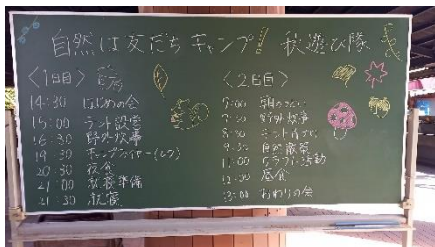 自然は友だちキャンプ! 秋遊び隊
<1日目>
14:30 はじめの会
15:00 テント設営
16:30 野外炊事
19:30 キャンプファイヤー
20:30 夜食
21:00 就寝準備
21:30 就寝
<2日目>
7:00 朝のつどい
7:30 野外炊事
8:30
9:30 自然散策
11:00 クラフト活動
12:00 昼食
13:00 おわりの会